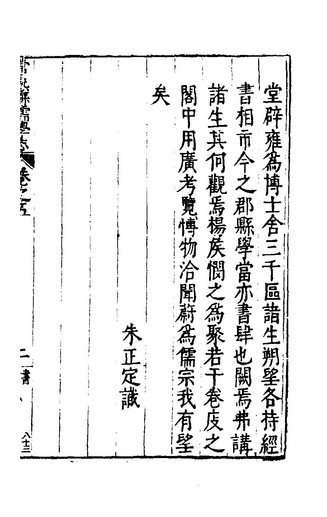 堂辟雍爲博士舍三千區諸生朔望各持經
書相市今之郡縣學當亦書肆也闕焉弗講
諸生其何觀焉楊矦憫之爲聚若干卷庋之
閣中用廣考覽愽物洽聞蔚爲儒宗我有望
矣
朱正定識